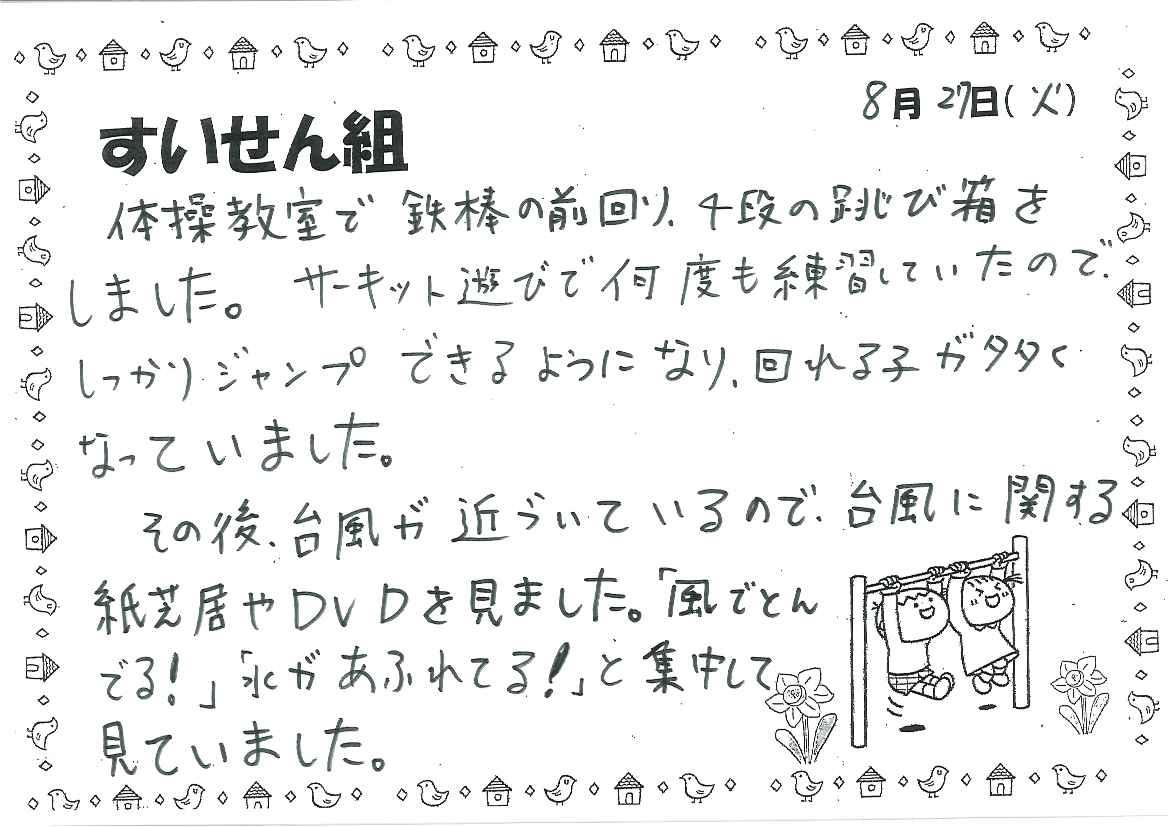 8月27日(火)
すいせん組
体操教室で鉄棒の前回り、4段の跳び箱を
しました。サーキット遊びで何度も練習していたので、
しっかりジャンプできるようになり、回れる子が多く
なっていました。
その後、台風が近づいているので、台風に関する
紙芝居やDVDを見ました。「風でとん
でる!」「水があふれてる!」と集中して
見ていました。